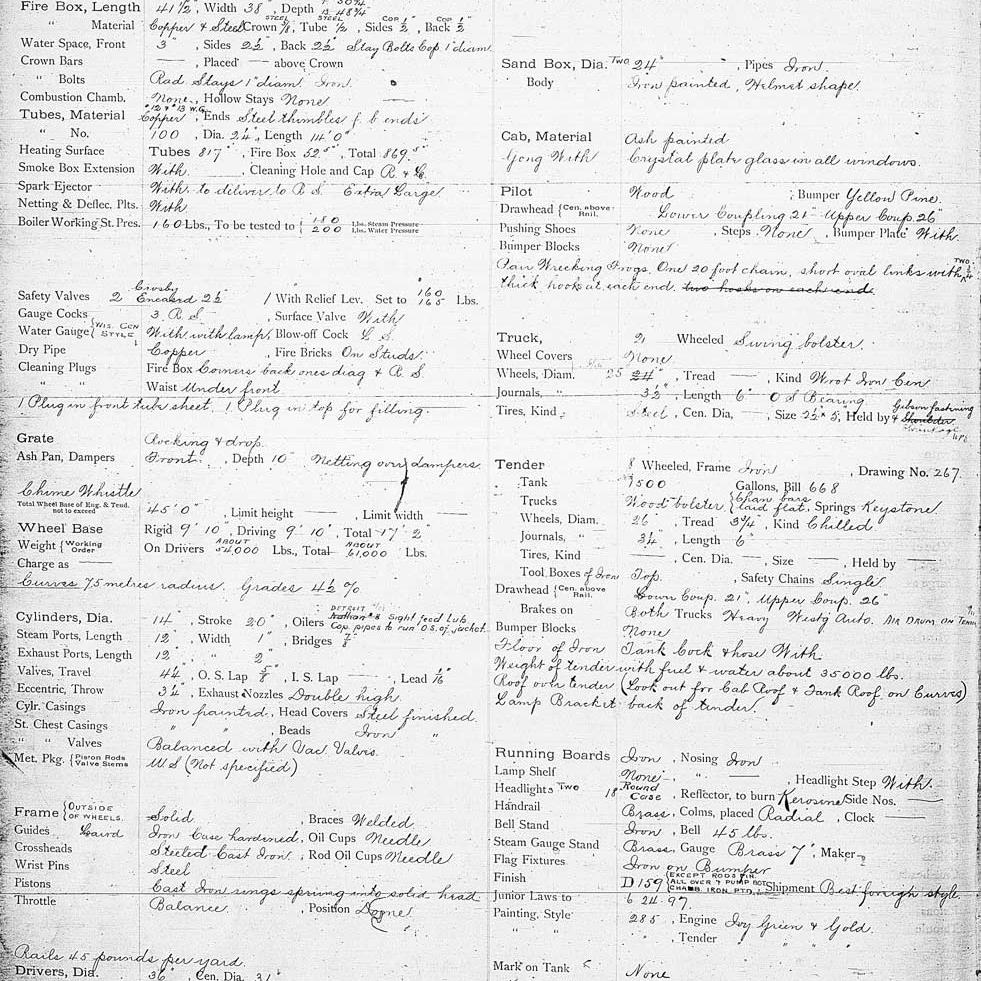 Fire Box, Length 41 1/2", Width 38", Depth 48 3/4"
Material Copper & Steel STEEL Crown 3/8, STEEL Tube 1/2, Sides COP 1/2", Back COP 1/2"
Water Space, Front 3", Sides 2 1/2", Back 2 1/2" Stay Bolts Cop. 1" diam.
Crown Bars — , Placed — above Crown
" Bolts Rad. Stays 1" diam. Iron.
Combustion Chamb. None , Hollow Stays None
Tubes, Material # 12 & # 13 W.G. Copper, Ends Steel thimbles f. b ends
" No. 100 , Dia. 2 1/4", Length 14' 0"
Heating Surface Tubes 817 , Fire Box 52.5 , Total 869.5
Smoke Box Extension With. , Cleaning Hole and Cap R. & L.
Spark Ejector With to deliver to R S Extra Large
Netting & Deflec. Plts. With
Boiler Working St. Pres. 160 Lbs., To be tested to { 180 Lbs. Steam Pressure
200 Lbs. Water Pressure
Safety Valves 2 Crosby Encased 2 1/2" / With Relief Lev. Set to 160 165 Lbs.
Gauge Cocks 3. R S , Surface Valve With
Water Gauge { WIS. CEN STYLE, With with lamp, Blow-off Cock L S.
Dry Pipe Copper , Fire Bricks On Studs.
Cleaning Plugs Fire Box Corners back ones diag & R S
" " Waist Under front
1 Plug in front tube sheet. 1 Plug in top for filling.
Grate Rocking & drop.
Ash Pan, Dampers Front. , Depth 10" Netting over dampers
Chime Whistle
Total Wheel Base of Eng. & Tend. not to exceed 45' 0" , Limit height — , Limit width —
Wheel Base Rigid 9' 10", Driving 9' 10", Total 17' 2"
Weight { Working Order On Drivers ABOUT 54,000 Lbs., Total ABOUT 61,000 Lbs.
Charge as —
Curves 75 metres radius. Grades 4 1/2 %
Cylinders, Dia. 14" , Stroke 20" , Oilers DETROIT Nathan # 8 Sight feed Lub
Cop. pipes to run O.S. of jacket
Steam Ports, Length 12" , Width 1" , Bridges 7/8"
Exhaust Ports, Length 12" , " 2"
Valves, Travel 4 1/4 , O. S. Lap 5/8" , I. S. Lap — , Lead 1/16"
Eccentric, Throw 3 1/4" , Exhaust Nozzles Double high.
Cylr. Casings Iron painted , Head Covers Steel finished
St. Chest Casings " " , Beads Iron "
" " Valves Balanced with Vac. Valves.
Met. Pkg. { Piston Rods Valve Stems U S (Not specified)
Frame { OUTSIDE OF WHEELS. Solid , Braces Welded.
Guides Laird Iron Case hardened, Oil Cups Needle
Crossheads Steeled Cast Iron , Rod Oil Cups Needle
Wrist Pins Steel
Pistons Cast Iron rings sprung into solid head
Throttle Balance , Position Dome
Rails 45 pounds per yard.
Drivers, Dia. 36" , Cen. Dia. 31"
Sand Box, Dia. TWO 24" , Pipes Iron.
Body Iron painted, Helmet shape.
Cab, Material Ash painted
Gong With Crystal plate glass in all windows.
Pilot Wood ; Bumper Yellow Pine.
Drawhead { Cen. above Rail. Lower Coupling 21" Upper Coup. 26"
Pushing Shoes None , Steps None , Bumper Plate With.
Bumper Blocks None
Pair Wrecking Frogs. One 20 foot chain, short oval links with TWO
thick hook at each end. two hooks on each end.
Truck, 2 Wheeled Swing bolster.
Wheel Covers None
Wheels, Diam. 25 24" , Tread — , Kind Wrot Iron Cen
Journals, " 3 1/2" , Length 6" O S Bearing
Tires, Kind Steel , Cen. Dia, — , Size 2 1/2 x 5", Held by Gibson fastening & Shoulder
Tender 8 Wheeled, Frame Iron , Drawing No. 267.
Tank 1500 Gallons, Bill 668
Trucks Wood bolster, { Chan. bars laid flat, Springs Keystone
Wheels, Diam. 26" , Tread 3 3/4", Kind Chilled.
Journals, " 3 1/4 , Length 6"
Tires, Kind — , Cen. Dia. — , Size — , Held by —
Tool Boxes of Iron Top. , Safety Chains Single
Drawhead { Cen. above Rail. Lower Coup. 21", Upper Coup. 26"
Brakes on Both Trucks Heavy Westg Auto. AIR DRUM ON TEND
Bumper Blocks None
Floor of Iron Tank Cock & hose With.
Weight of tender with fuel & water about 35000 lbs.
Roof over tender (Look out for Cab Roof & Tank Roof on Curves)
Lamp Bracket back of tender.
Running Boards Iron , Nosing Iron
Lamp Shelf None " — , Headlight Step With.
Headlights Two 18" Round Case , Reflector, to burn Kerosine Side Nos. —
Handrail Brass, Colms, placed Radial , Clock —
Bell Stand Iron , Bell 45 lbs.
Steam Gauge Stand Brass, Gauge Brass 7", Maker
Flag Fixtures Iron on Bumper
Finish D 159 { EXCEPT RODS FIN. ALL OVER & PUMP BOT. CHAMB. IRON, PTD., Shipment Best foreign style.
Junior Laws to 6 24. 97.
Painting, Style 285 , Engine Ivy Green & Gold.
" " , Tender " " "
Mark on Tank None